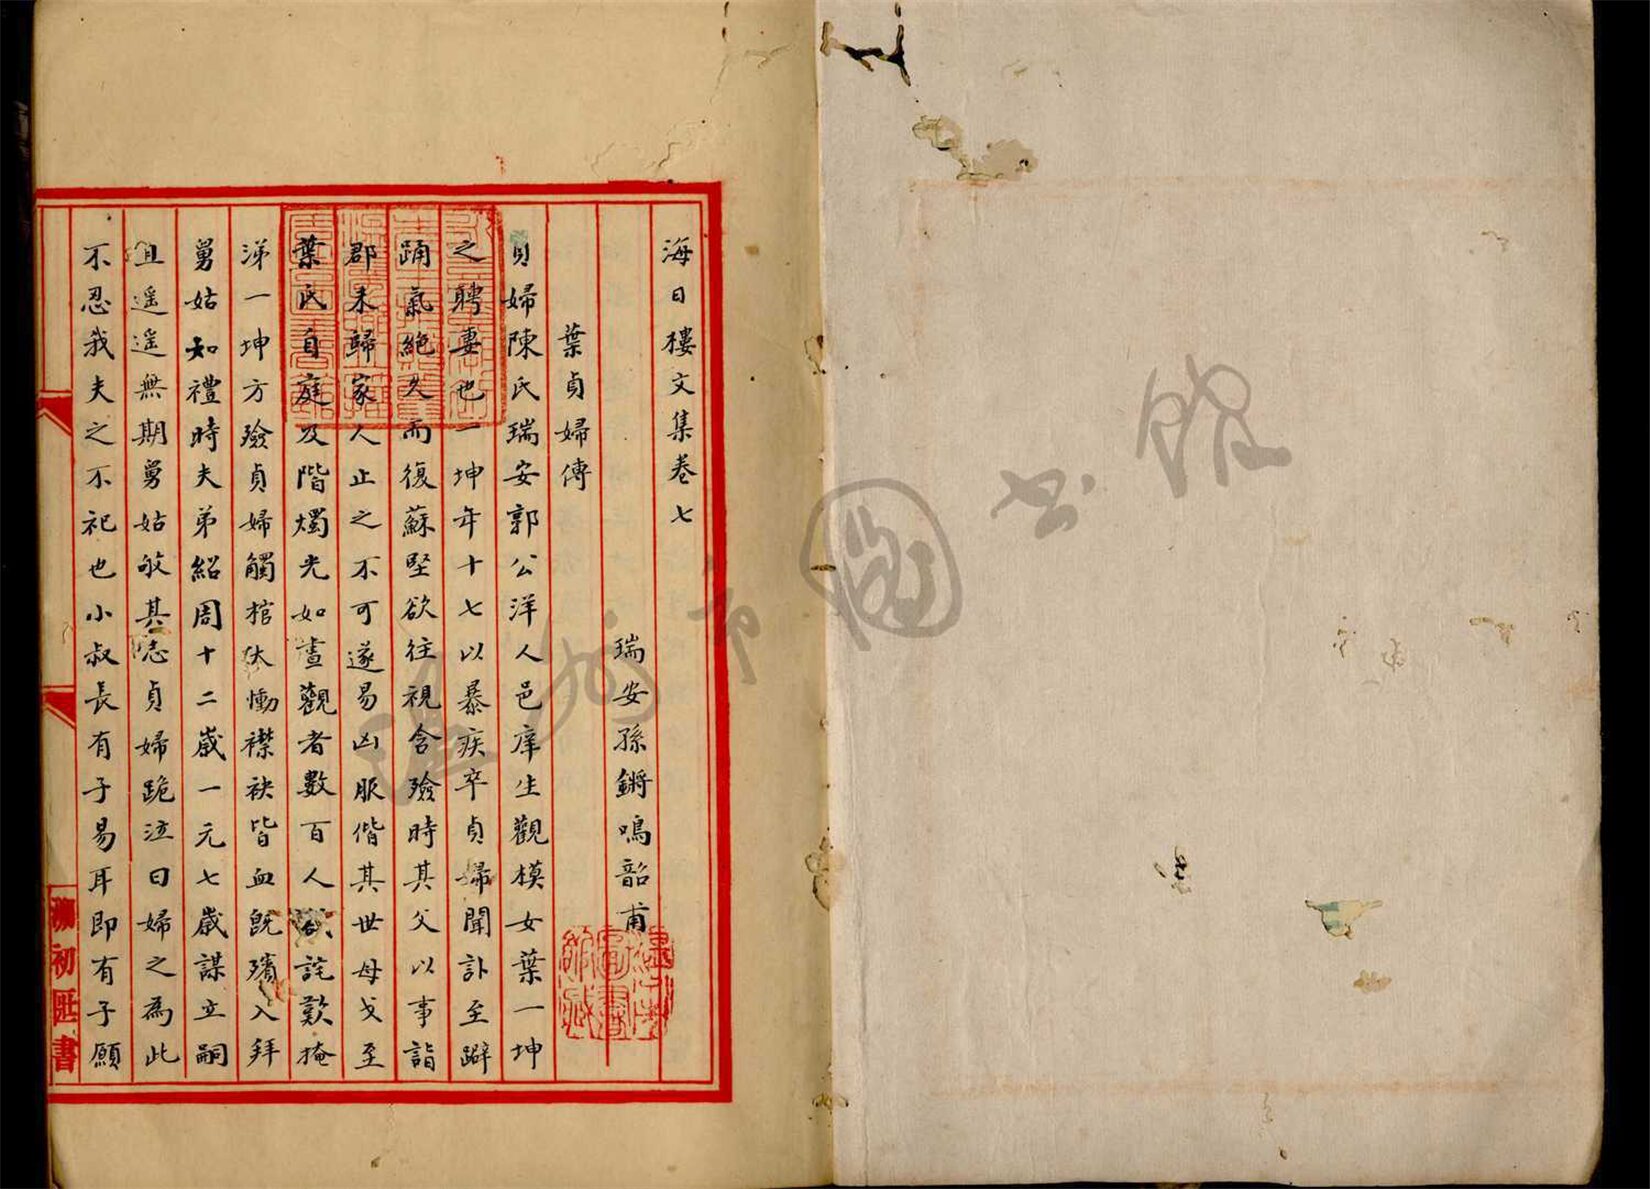 海日樓文集卷七
瑞安孫鏘鳴韶甫
葉貞婦傳
貞婦陳氏瑞安郭公洋人邑庠生觀模女葉一坤
之聘妻也一坤年十七以暴疾卒貞婦聞訃至躃
踊氣絕久而復蘇堅欲往視含殮時其父以事詣
郡未歸家人止之不可遂易凶服偕其世母戈至
葉氏自庭及階燭光如晝觀者數百人咸詫歎掩
涕一坤方殮貞婦觸棺大慟襟袂皆血旣殯入拜
舅姑如禮時夫弟紹周十二歲一元七歲謀立嗣
且遥遥無期舅姑敬其志貞婦跪泣曰婦之為此
不忍我夫之不祀也小叔長有子易耳即有子願
初匨書
溫州市圖書館